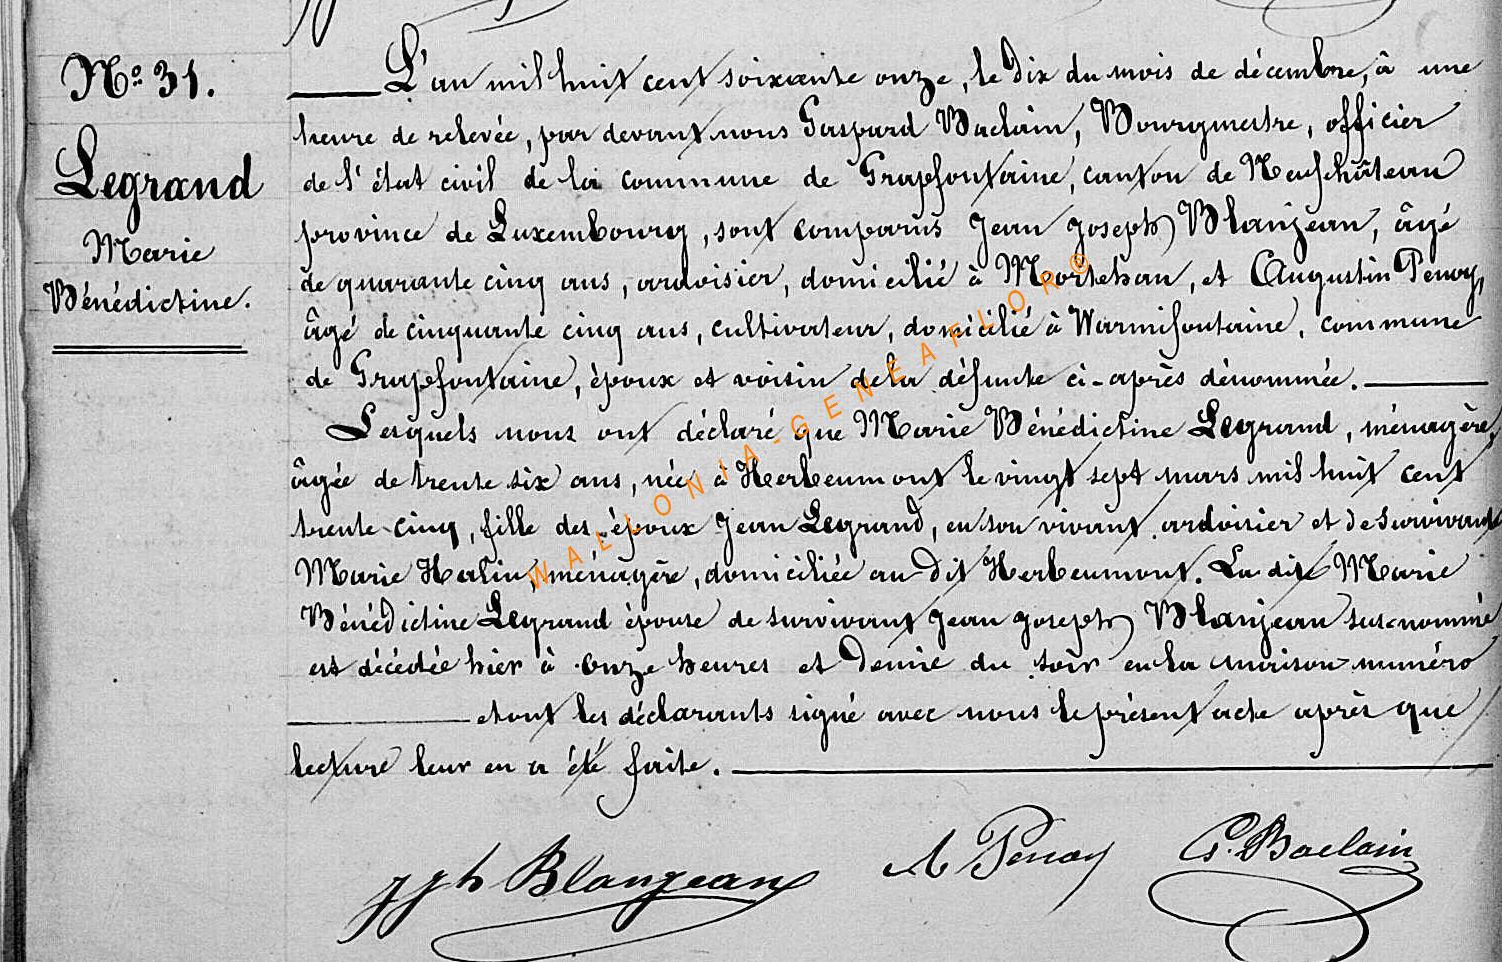 N° 31.
Legrand
Marie
Bénédictine.
L'an mil huit cent soixante onze, le dix du mois de décembre, à une
heure de relevée, par devant nous Gaspard Baclain, Bourgmestre, officier
de l'état civil de la commune de Grapfontaine, canton de Neufchâteau
province de Luxembourg, sont comparus Jean Joseph Blanjean, âgé
de quarante cinq ans, ardoisier, domicilié à Mortehan, et Augustin Penay,
âgé de cinquante cinq ans, cultivateur, domicilié à Warmifontaine, commune
de Grapfontaine, époux et voisin de la défunte ci-après dénommée.
Lesquels nous ont déclaré que Marie Bénédictine Legrand, ménagère,
âgée de trente six ans, née à Herbeumont le vingt sept mars mil huit cent
trente-cinq, fille des époux Jean Legrand, en son vivant ardoisier et de survivante
Marie Herlin, ménagère, domiciliée au dit Herbeumont. La dite Marie
Bénédictine Legrand épouse de survivant Jean Joseph Blanjean susnommé
est décédée hier à onze heures et demie du soir en la maison numéro
et ont les déclarants signé avec nous le présent acte après que
lecture leur en a été faite.
Jph Blangean A Penay G. Baclain
WALLONIA-GENEAFLOR©